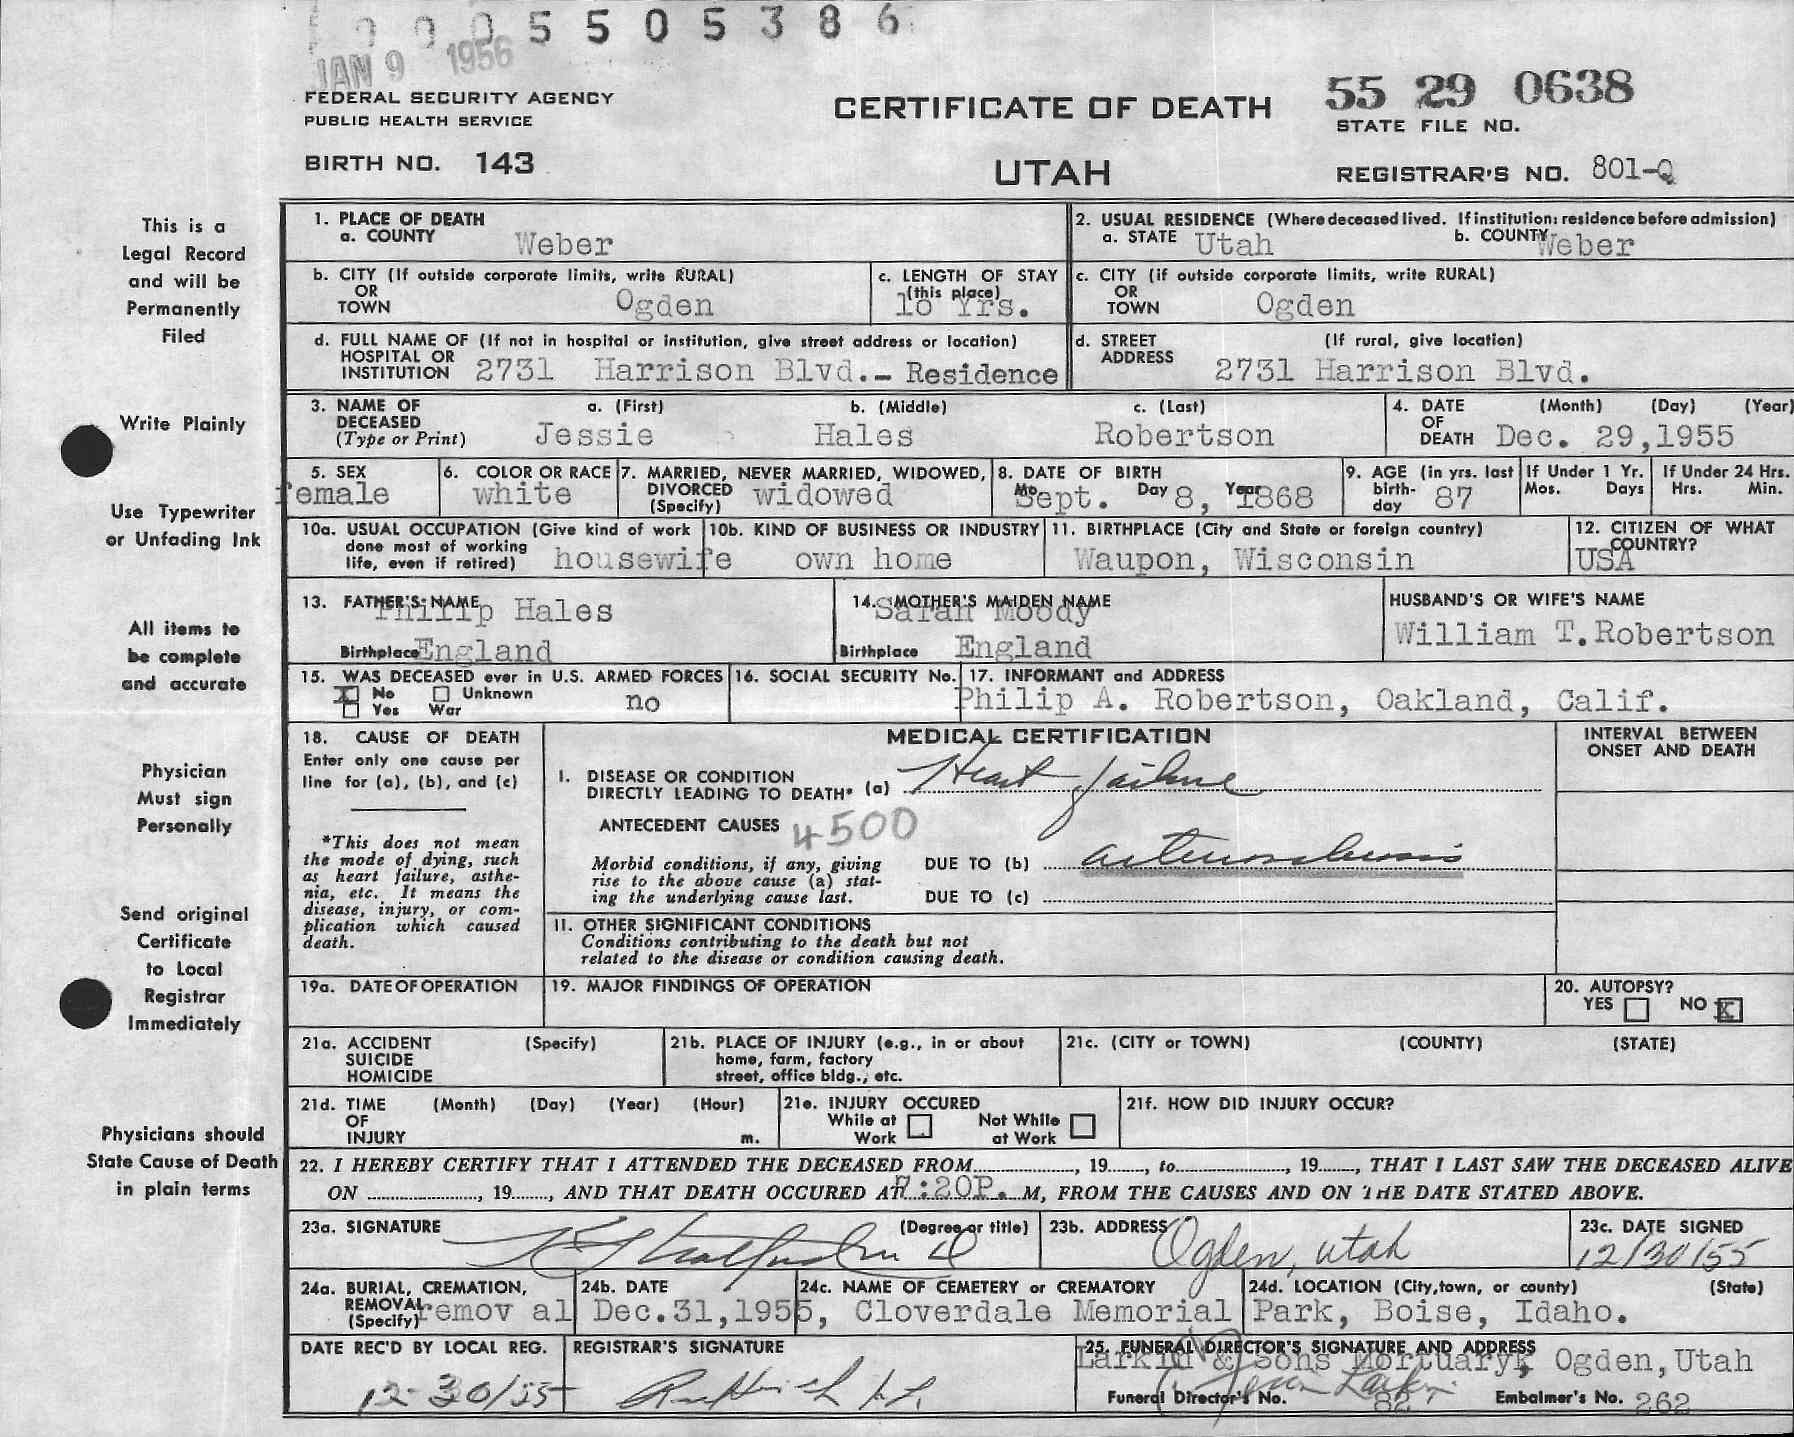 0 0 0 5 5 0 5 3 8 6
JAN 9 1956
FEDERAL SECURITY AGENCY
PUBLIC HEALTH SERVICE
BIRTH NO. 143
CERTIFICATE OF DEATH
UTAH
55 29 0638
STATE FILE NO.
REGISTRAR'S NO. 801-Q
This is a
Legal Record
and will be
Permanently
Filed
Write Plainly
Use Typewriter
or Unfading Ink
All items to
be complete
and accurate
Physician
Must sign
Personally
Send original
Certificate
to Local
Registrar
Immediately
Physicians should
State Cause of Death
in plain terms
1. PLACE OF DEATH
a. COUNTY Weber
2. USUAL RESIDENCE (Where deceased lived. If institution: residence before admission)
a. STATE Utah b. COUNTY Weber
b. CITY (If outside corporate limits, write RURAL)
OR
TOWN Ogden
c. LENGTH OF STAY
(this place)
10 Yrs.
c. CITY (if outside corporate limits, write RURAL)
OR
TOWN Ogden
d. FULL NAME OF (If not in hospital or institution, give street address or location)
HOSPITAL OR
INSTITUTION 2731 Harrison Blvd.- Residence
d. STREET (If rural, give location)
ADDRESS 2731 Harrison Blvd.
3. NAME OF a. (First) b. (Middle) c. (Last)
DECEASED
(Type or Print) Jessie Hales Robertson
4. DATE (Month) (Day) (Year)
OF
DEATH Dec. 29,1955
5. SEX
female
6. COLOR OR RACE
white
7. MARRIED, NEVER MARRIED, WIDOWED,
DIVORCED widowed
(Specify)
8. DATE OF BIRTH
Mo. Sept. Day 8, Year 1868
9. AGE (in yrs. last
birth-
day 87
If Under 1 Yr.
Mos. Days
If Under 24 Hrs.
Hrs. Min.
10a. USUAL OCCUPATION (Give kind of work
done most of working
life, even if retired) housewife
10b. KIND OF BUSINESS OR INDUSTRY
own home
11. BIRTHPLACE (City and State or foreign country)
Waupon, Wisconsin
12. CITIZEN OF WHAT
COUNTRY?
USA
13. FATHER'S NAME
Philip Hales
Birthplace England
14. MOTHER'S MAIDEN NAME
Sarah Moody
Birthplace England
HUSBAND'S OR WIFE'S NAME
William T.Robertson
15. WAS DECEASED ever in U.S. ARMED FORCES
X No Unknown no
Yes War
16. SOCIAL SECURITY No.
17. INFORMANT and ADDRESS
Philip A. Robertson, Oakland, Calif.
18. CAUSE OF DEATH
Enter only one cause per
line for (a), (b), and (c)
*This does not mean
the mode of dying, such
as heart failure, asthe-
nia, etc. It means the
disease, injury, or com-
plication which caused
death.
MEDICAL CERTIFICATION
I. DISEASE OR CONDITION
DIRECTLY LEADING TO DEATH* (a) Heart failure
ANTECEDENT CAUSES 4500
Morbid conditions, if any, giving
rise to the above cause (a) stat-
ing the underlying cause last.
DUE TO (b) arteriosclerosis
DUE TO (c)
II. OTHER SIGNIFICANT CONDITIONS
Conditions contributing to the death but not
related to the disease or condition causing death.
INTERVAL BETWEEN
ONSET AND DEATH
19a. DATE OF OPERATION
19. MAJOR FINDINGS OF OPERATION
20. AUTOPSY?
YES NO X
21a. ACCIDENT (Specify)
SUICIDE
HOMICIDE
21b. PLACE OF INJURY (e.g., in or about
home, farm, factory
street, office bldg., etc.
21c. (CITY or TOWN) (COUNTY) (STATE)
21d. TIME (Month) (Day) (Year) (Hour)
OF
INJURY m.
21e. INJURY OCCURED
While at Work Not While at Work
21f. HOW DID INJURY OCCUR?
22. I HEREBY CERTIFY THAT I ATTENDED THE DECEASED FROM, 19, to, 19, THAT I LAST SAW THE DECEASED ALIVE
ON, 19, AND THAT DEATH OCCURED AT 7:20P. M, FROM THE CAUSES AND ON THE DATE STATED ABOVE.
23a. SIGNATURE (Degree or title)
23b. ADDRESS
Ogden, Utah
23c. DATE SIGNED
12/30/55
24a. BURIAL, CREMATION,
REMOVAL
(Specify) remov al
24b. DATE
Dec.31,1955,
24c. NAME OF CEMETERY or CREMATORY
Cloverdale Memorial Park,
24d. LOCATION (City,town, or county) (State)
Boise, Idaho.
DATE REC'D BY LOCAL REG.
12-30/55
REGISTRAR'S SIGNATURE
25. FUNERAL DIRECTOR'S SIGNATURE AND ADDRESS
Larkin & Sons Mortuary, Ogden,Utah
Funeral Director's No. 82 Embalmer's No. 262